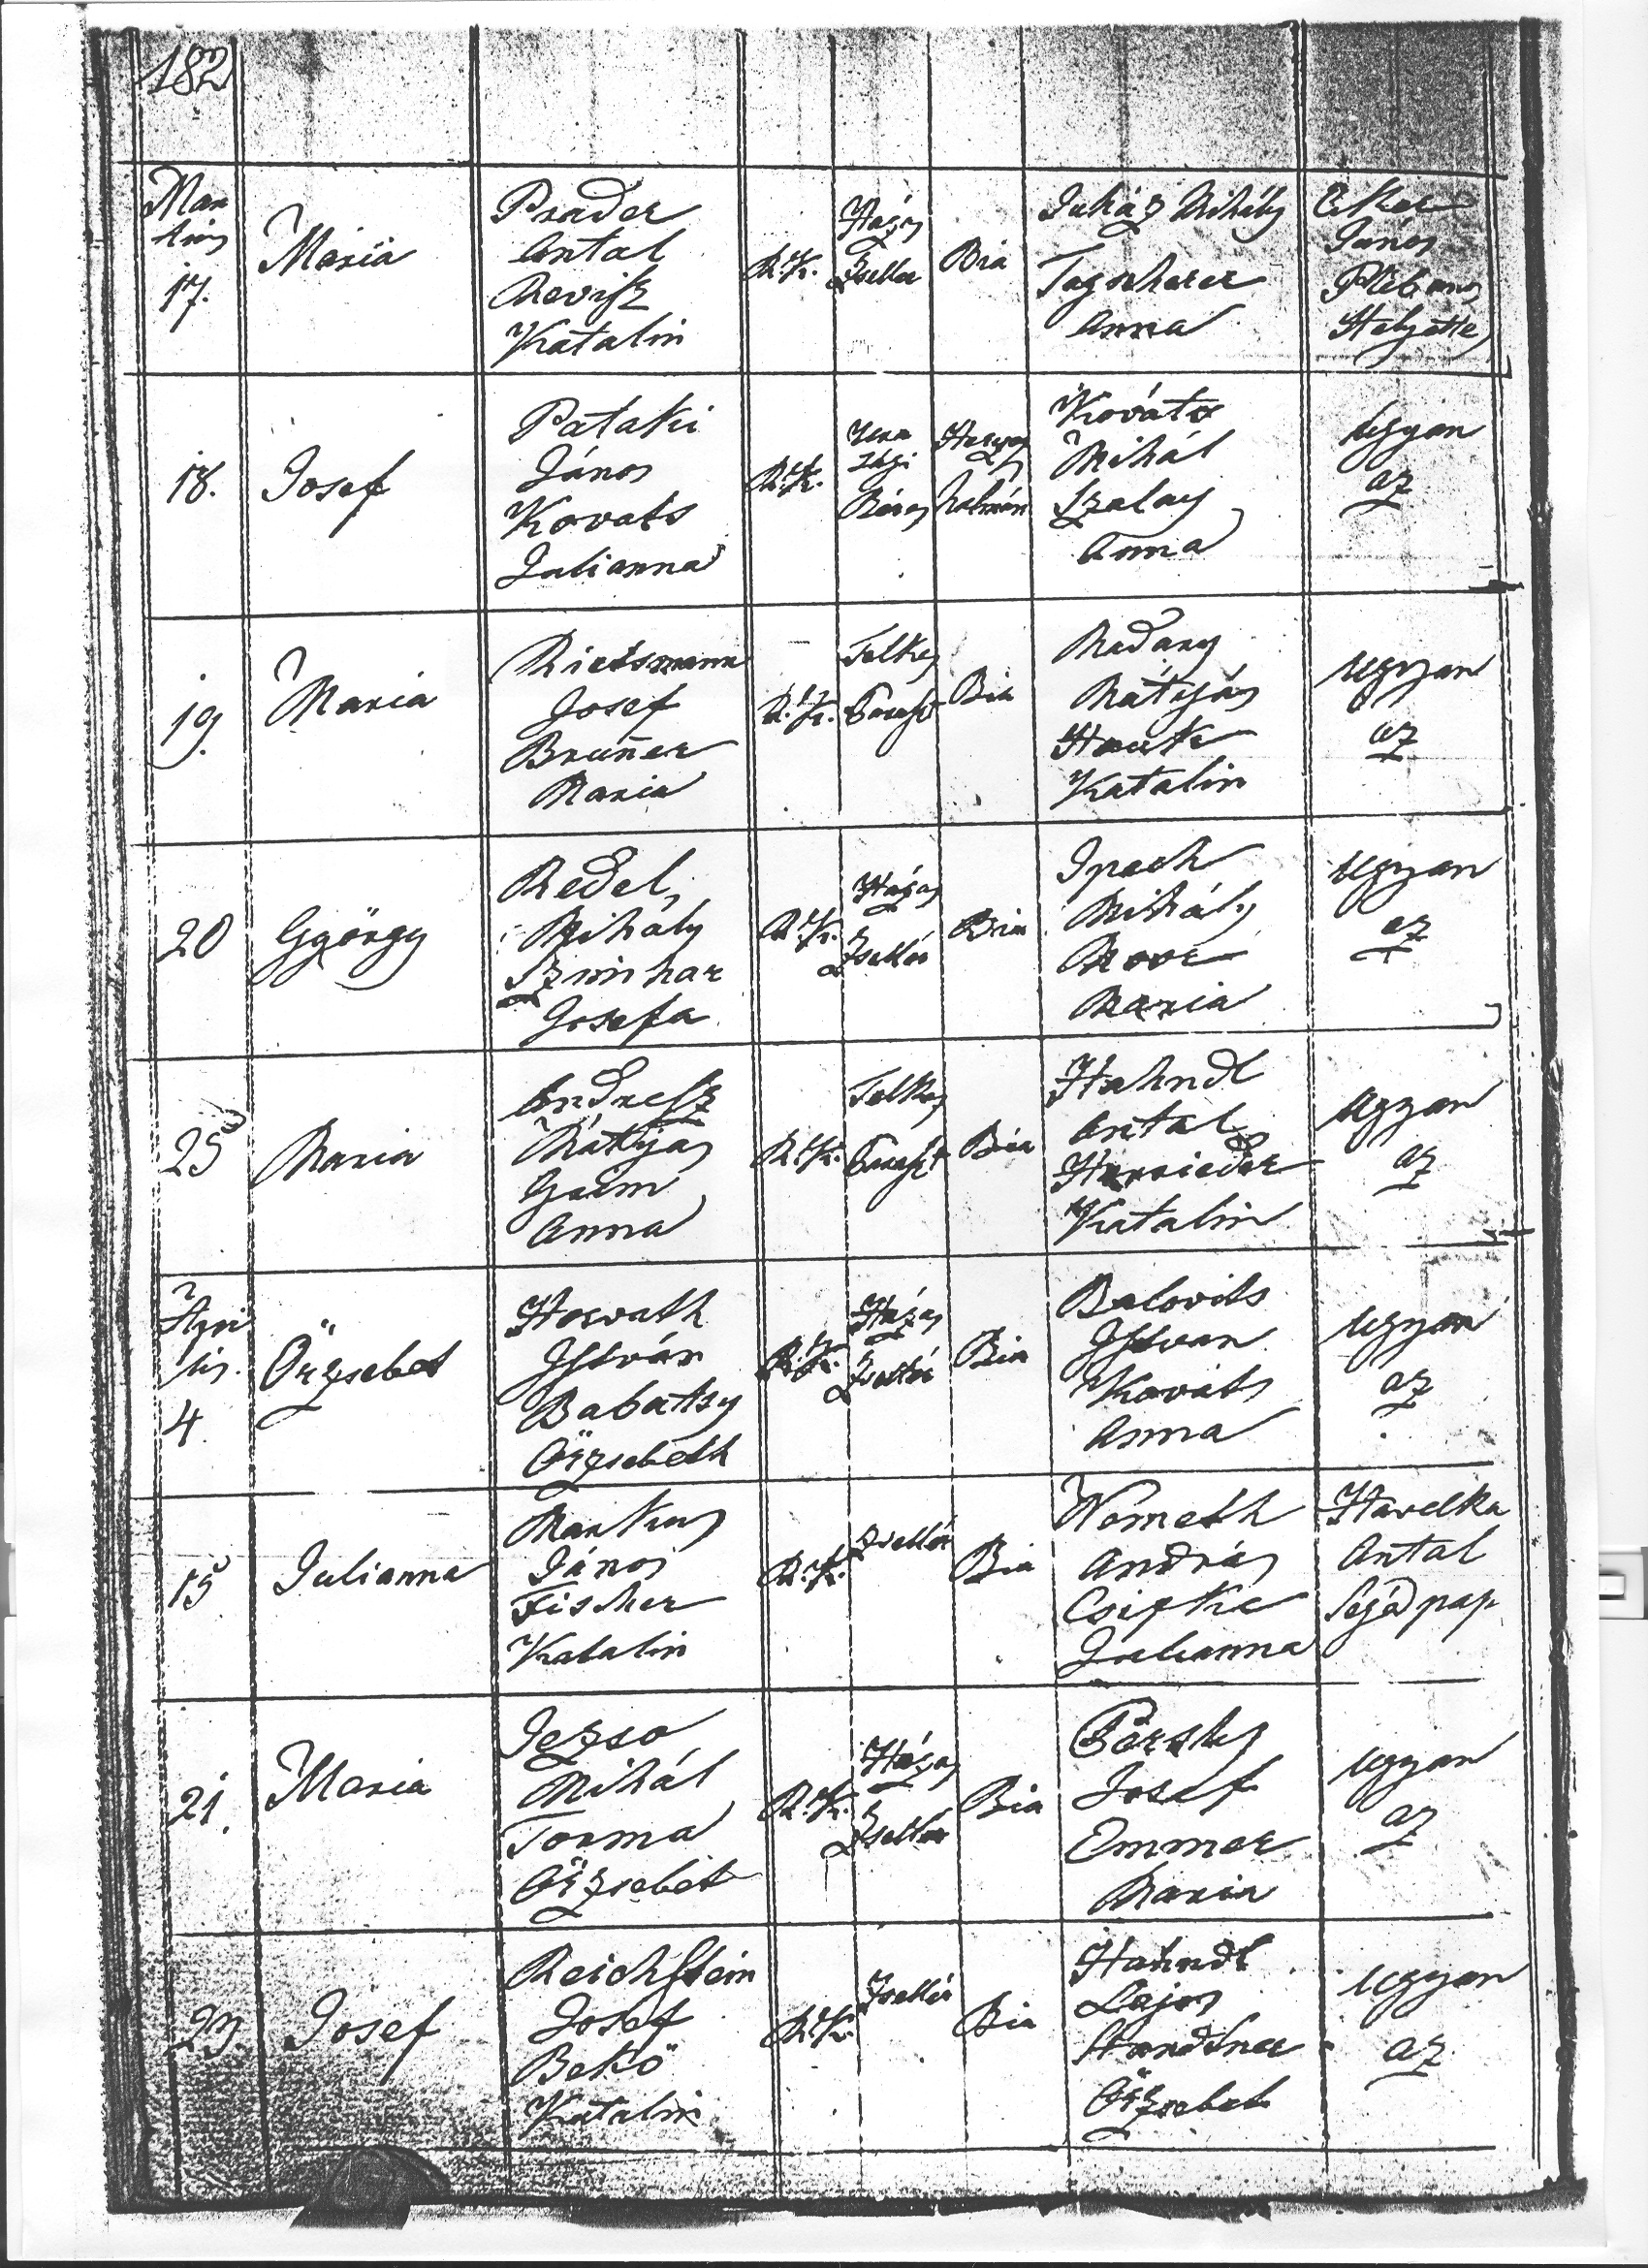 182
Mar
tius
17.
Mariä
Prader
Antal
Revisz
Katalin
R. K.
Házas
Zsellér
Bia
Juház Mihály
Tagscherer
Anna
Eker
János
Plébános
Helyette
18.
Josef
Pataki
János
Kovats
Julianna
R. K.
Béres
Kováts
Mihál
Szalay
Anna
Ugyan
az
19.
Maria
Rietsmann
Josef
Bruner
Maria
R. K.
Telkes
Paraszt
Bia
Madary
Mátyás
Hauk
Katalin
Ugyan
az
20
György
Redel
Mihály
Josefa
R. K.
Házas
Zsellér
Bia
Mihály
Maria
Ugyan
az
25
Maria
Andresz
Mátyás
Anna
R. K.
Telkes
Paraszt
Bia
Hahndl
Antal
Katalin
Ugyan
az
Apri
lis.
4
Örzsebet
Horvath
István
Babatsy
Örzsebeth
R. K.
Házas
Zsellér
Bia
Balovits
Istvan
Kováts
Anna
Ugyan
az
15
Julianna
Markus
János
Fischer
Katalin
R. K.
Zsellér
Bia
Nemeth
András
Csipke
Julianna
Havelka
Antal
Segéd pap
21.
Maria
Jezso
Mihál
Torma
Örzsebet
R. K.
Házas
Zsellér
Bia
Josef
Emmer
Maria
Ugyan
az
23.
Josef
Reichstein
Josef
Bekö
Katalin
R. K.
Zsellér
Bia
Hahndl
Lajos
Örzsebet
Ugyan
az